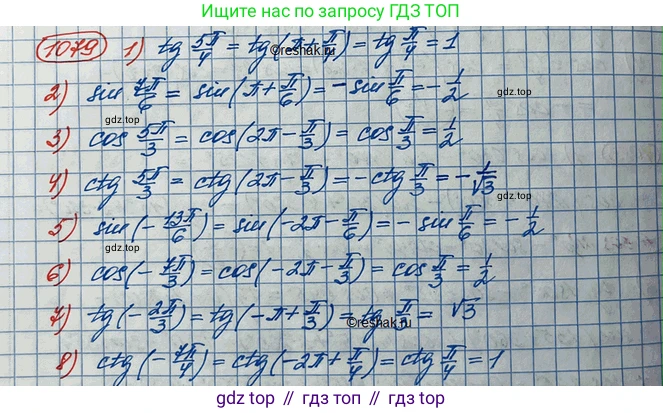 Ищите нас по запросу ГДЗ ТОП
1079 1) tg 5π/4 = tg(π + π/4) = tg π/4 = 1
©reshak.ru
2) sin 7π/6 = sin(π + π/6) = -sin π/6 = -1/2
gdz.top
gdz.top
3) cos 5π/3 = cos(2π - π/3) = cos π/3 = 1/2
4) ctg 5π/3 = ctg(2π - π/3) = -ctg π/3 = -1/√3
gdz.top
5) sin(-13π/6) = sin(-2π - π/6) = -sin π/6 = -1/2
gdz.top
6) cos(-7π/3) = cos(-2π - π/3) = cos π/3 = 1/2
7) tg(-2π/3) = tg(-π + π/3) = tg π/3 = √3
©reshak.ru
8) ctg(-7π/4) = ctg(-2π + π/4) = ctg π/4 = 1
gdz top // гдз топ // gdz.top